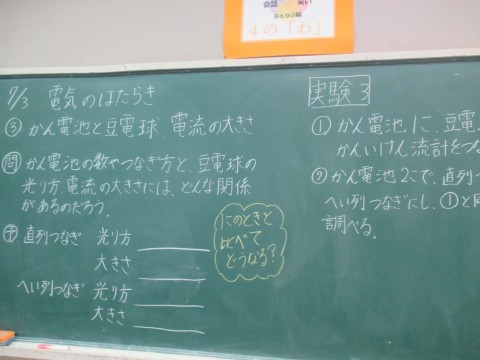 会話
笑い
4の「わ」
7/3 電気のはたらき
③かん電池と豆電球、電流の大きさ
問 かん電池の数やつなぎ方と、豆電球の
光り方、電流の大きさには、どんな関係
があるのだろう。
予 直列つなぎ 光り方
大きさ
へい列つなぎ 光り方
大きさ
このときと
比べて
どうなる?
実験3
①かん電池に、豆電
かんいけん流計をつな
②かん電池2こで、直列つ
へい列つなぎにし、①と同
調べる。